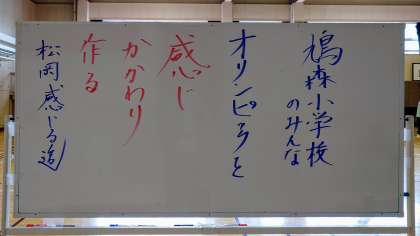 鳩森小学校
のみんな
オリンピックを
感じ
かかわり
作る
松岡感じる造